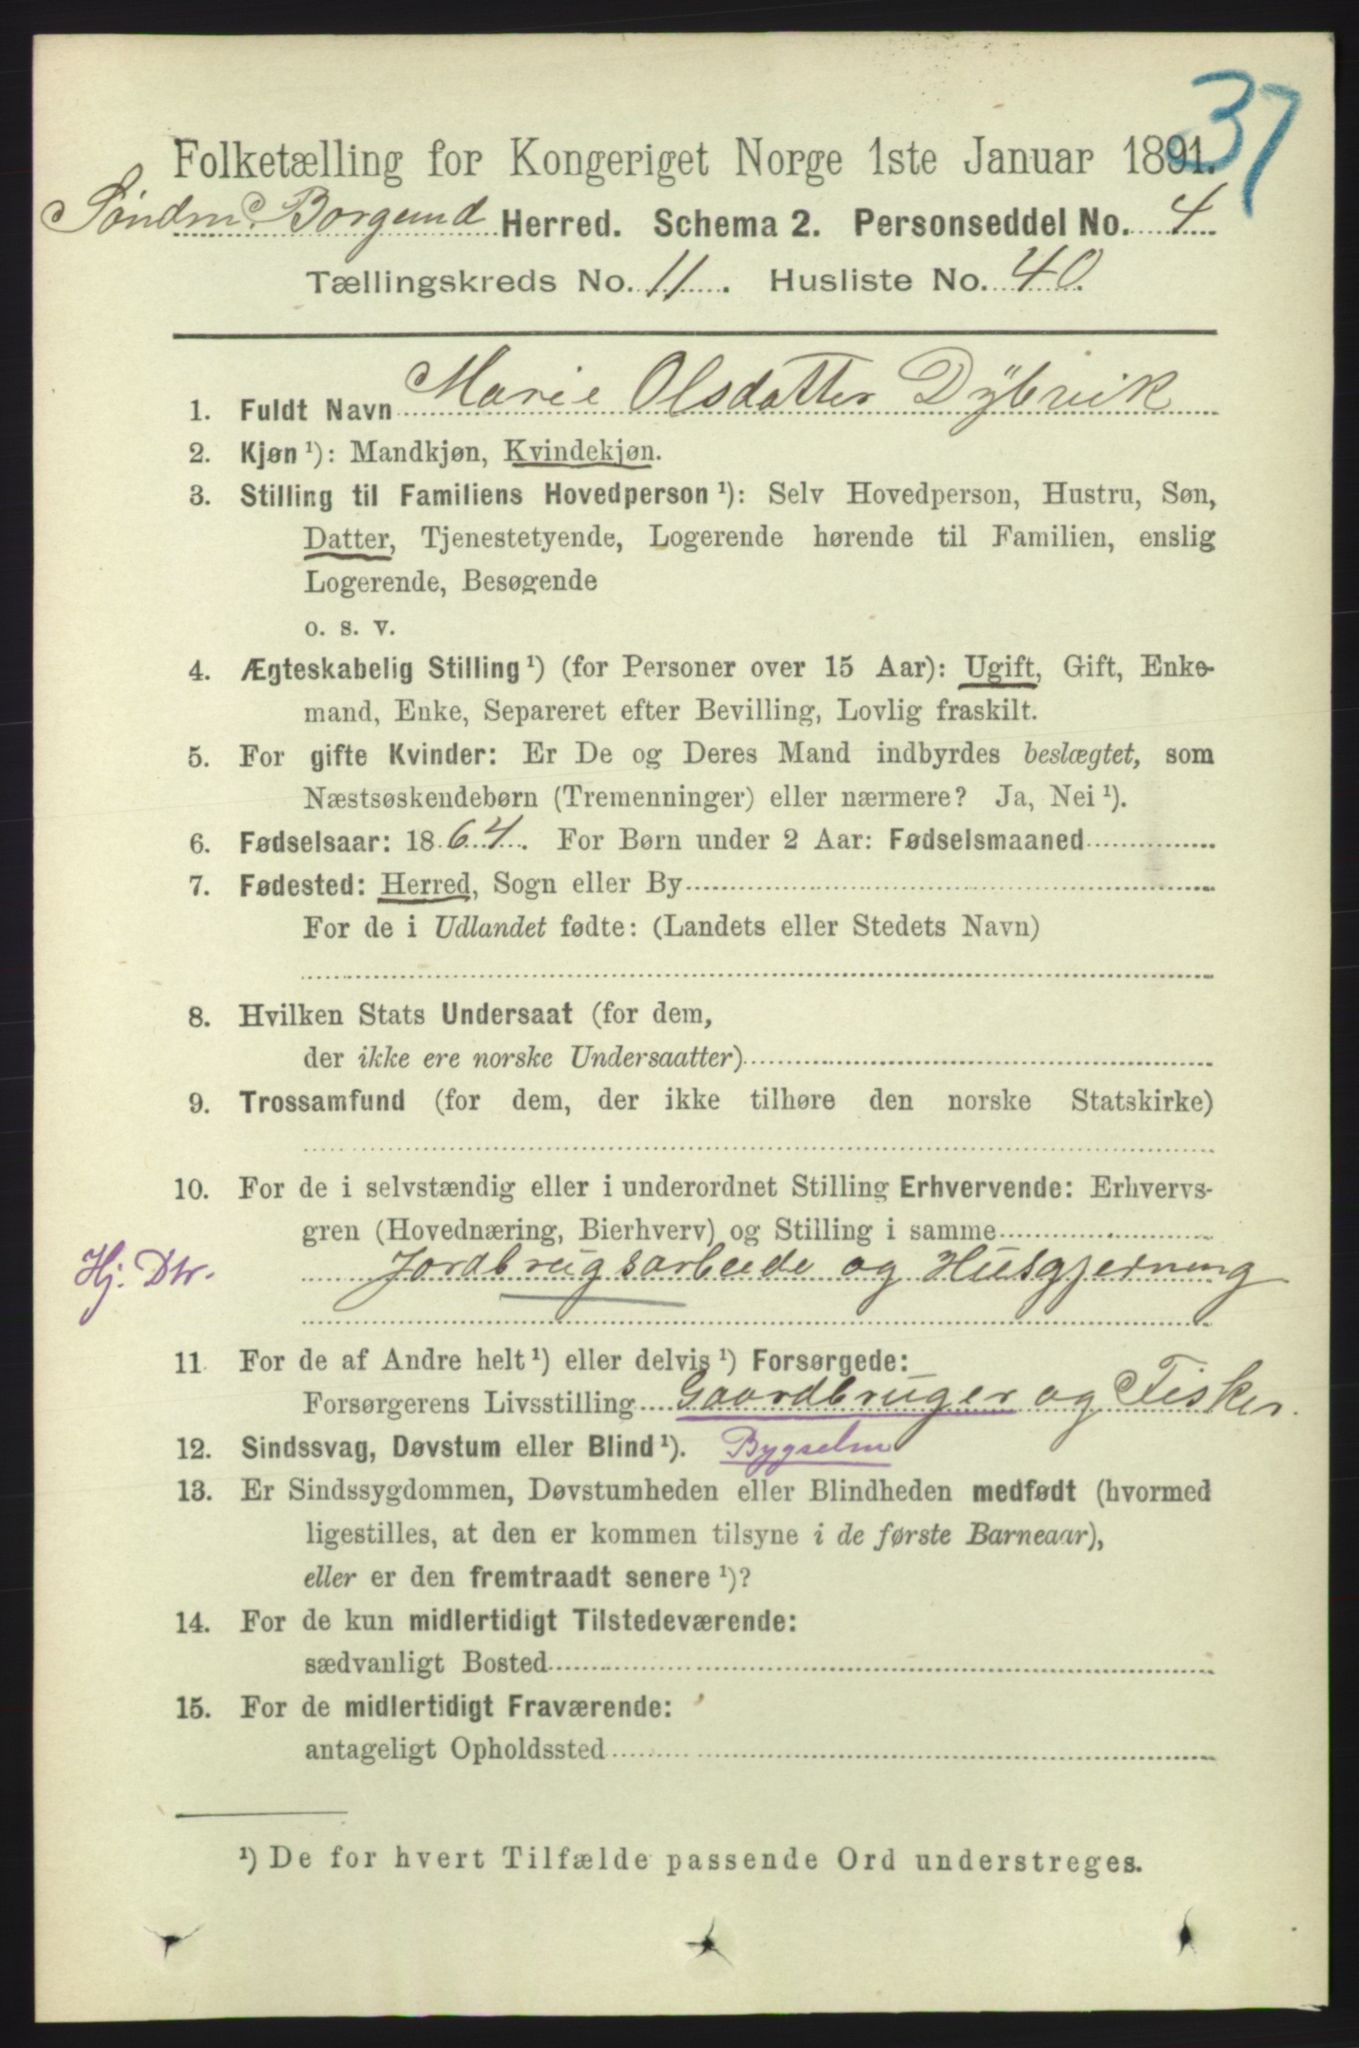 37
Folketælling for Kongeriget Norge 1ste Januar 1891.
Søndm. Borgund Herred. Schema 2. Personseddel No. 4
Tællingskreds No. 11. Husliste No. 40.
1. Fuldt Navn Marie Olsdatter Dÿbvik
2. Kjøn ¹): Mandkjøn, Kvindekjøn.
3. Stilling til Familiens Hovedperson ¹): Selv Hovedperson, Hustru, Søn,
Datter, Tjenestetyende, Logerende hørende til Familien, enslig
Logerende, Besøgende
o. s. v.
4. Ægteskabelig Stilling ¹) (for Personer over 15 Aar): Ugift, Gift, Enke-
mand, Enke, Separeret efter Bevilling, Lovlig fraskilt.
5. For gifte Kvinder: Er De og Deres Mand indbyrdes beslægtet, som
Næstsøskendebørn (Tremenninger) eller nærmere? Ja, Nei ¹).
6. Fødselsaar: 1864. For Børn under 2 Aar: Fødselsmaaned
7. Fødested: Herred, Sogn eller By
For de i Udlandet fødte: (Landets eller Stedets Navn)
8. Hvilken Stats Undersaat (for dem,
der ikke ere norske Undersaatter)
9. Trossamfund (for dem, der ikke tilhøre den norske Statskirke)
10. For de i selvstændig eller i underordnet Stilling Erhvervende: Erhvervs-
gren (Hovednæring, Bierhverv) og Stilling i samme
Hj. Dtr. Jordbrugsarbeide og Husgjerning
11 For de af Andre helt ¹) eller delvis ¹) Forsørgede:
Forsørgerens Livsstilling Gaardbruger og Fisker.
12. Sindssvag, Døvstum eller Blind ¹). Bygselm
13. Er Sindssygdommen, Døvstumheden eller Blindheden medfødt (hvormed
ligestilles, at den er kommen tilsyne i de første Barneaar),
eller er den fremtraadt senere ¹)?
14. For de kun midlertidigt Tilstedeværende:
sædvanligt Bosted
15. For de midlertidigt Fraværende:
antageligt Opholdssted
¹) De for hvert Tilfælde passende Ord understreges.